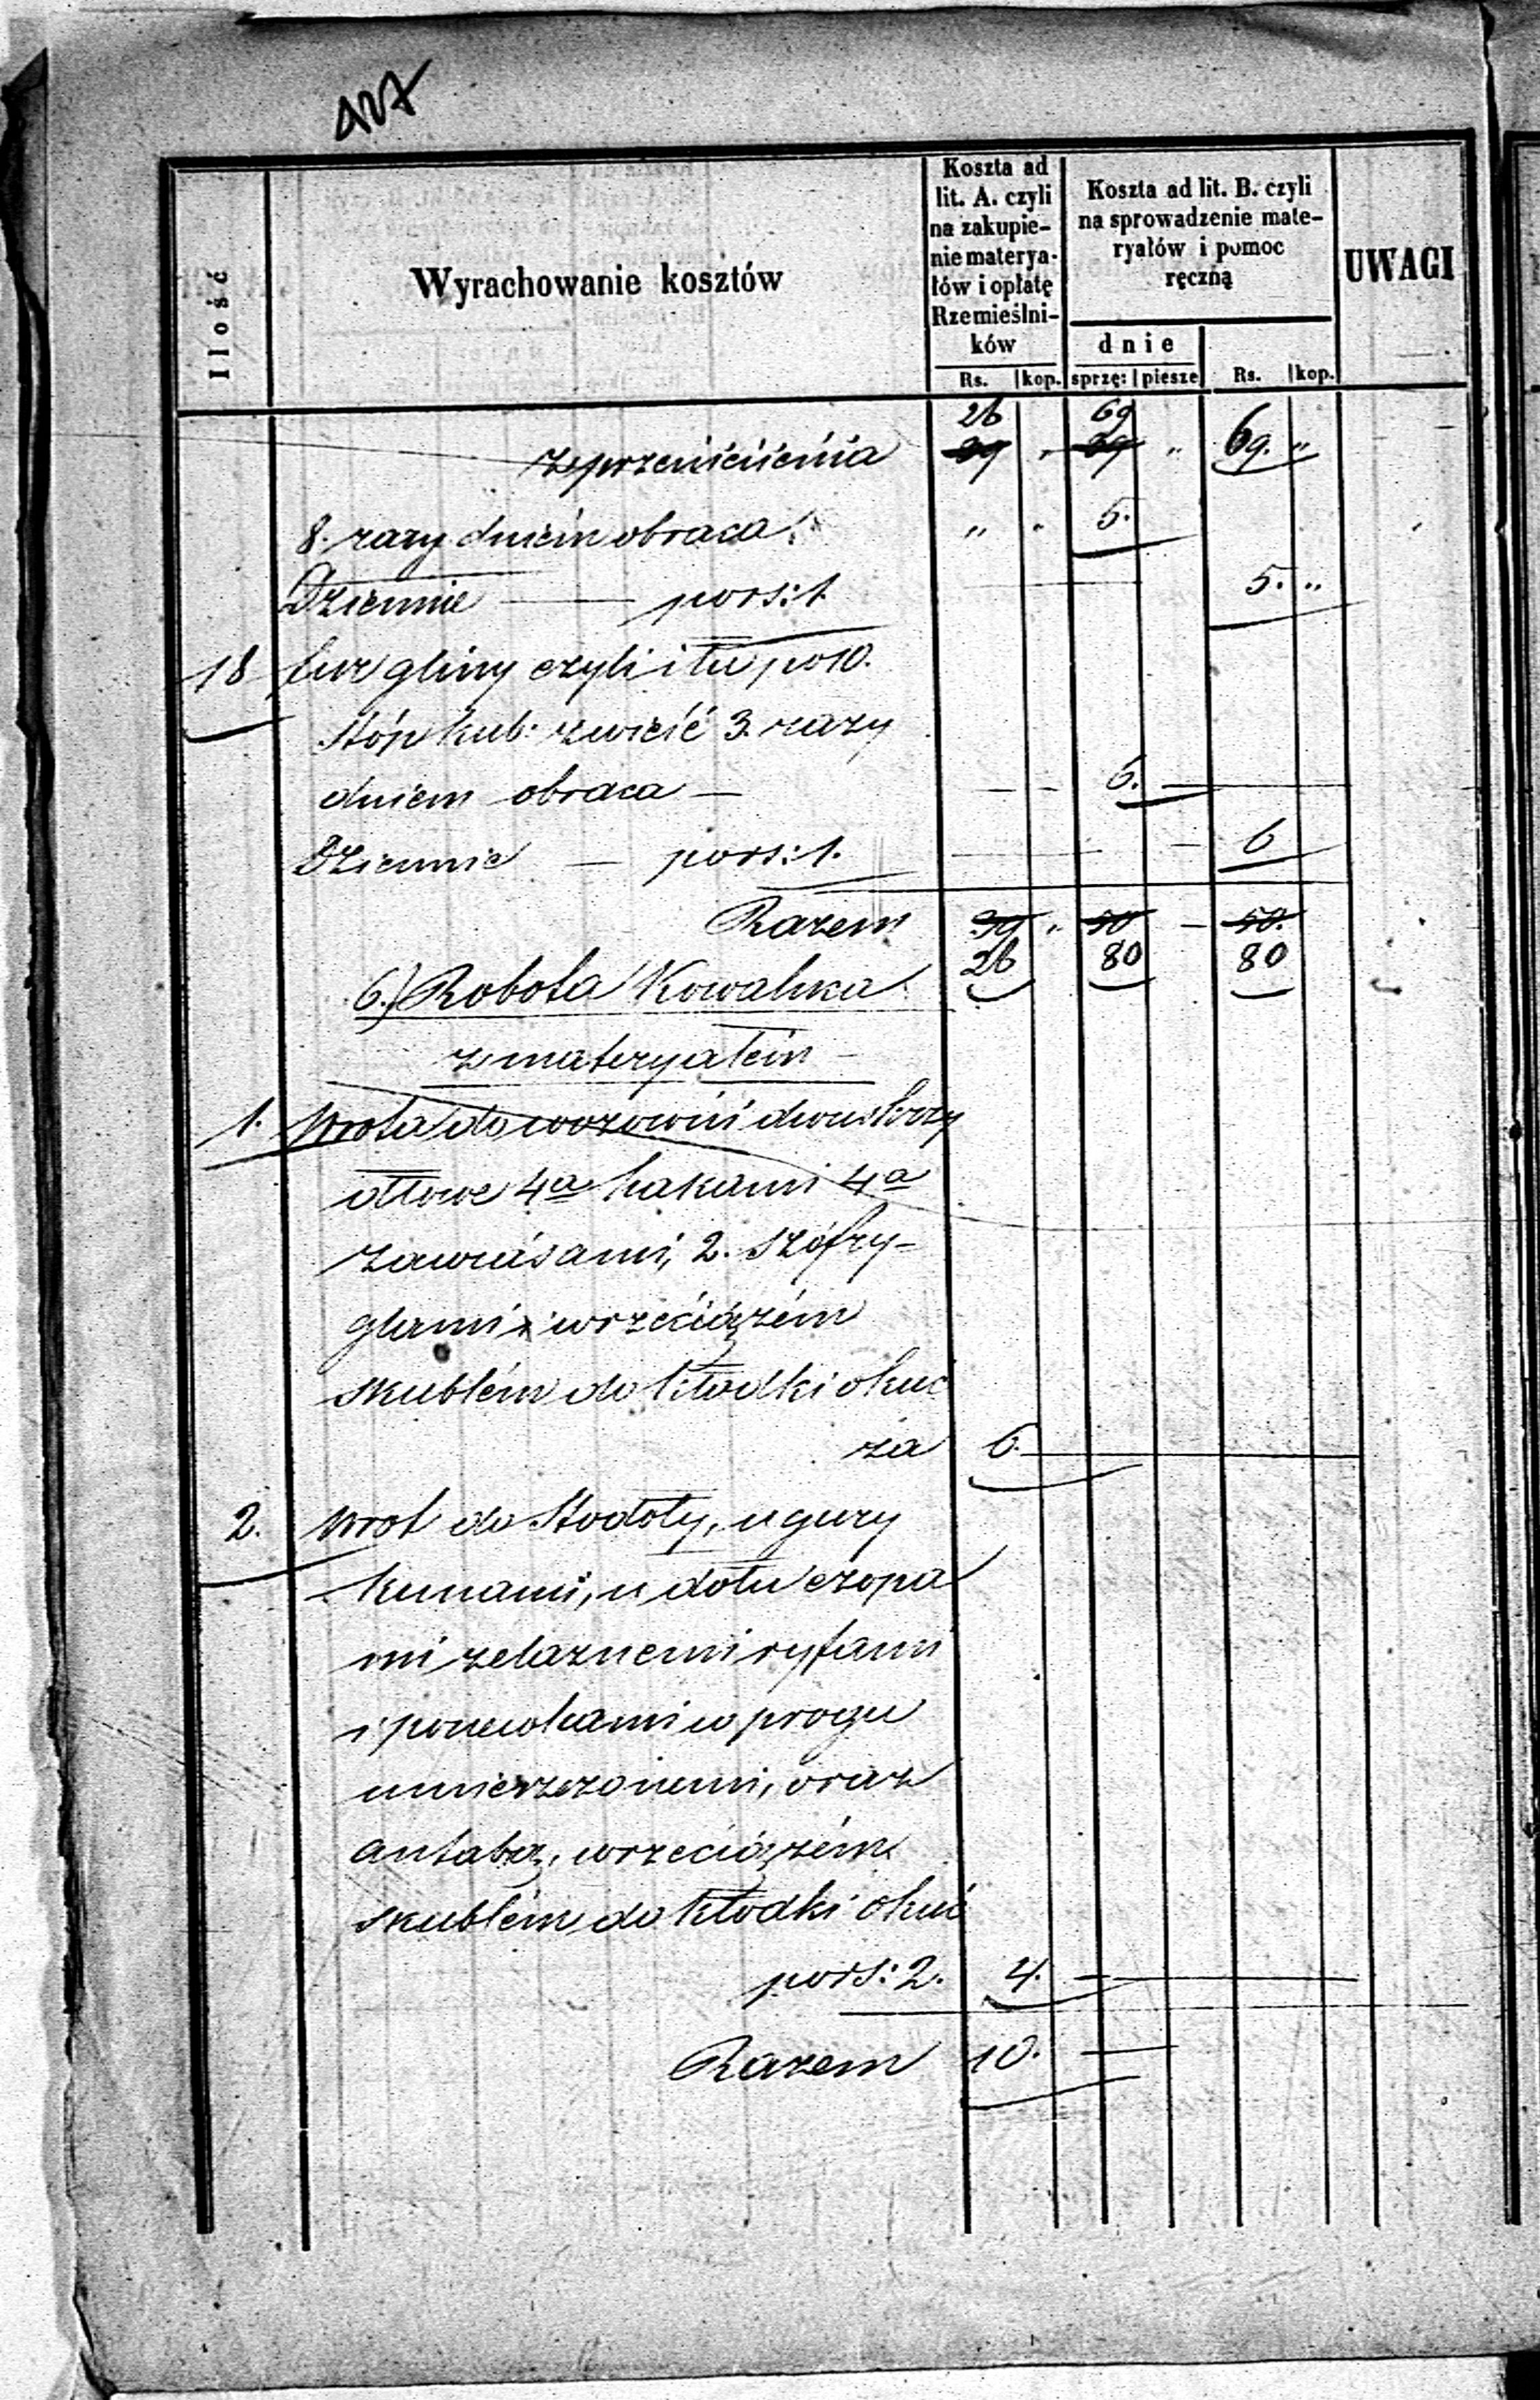 427
Ilość
Wyrachowanie kosztów
Koszta ad
lit. A. czyli
na zakupie-
nie materya-
łów i opłatę
Rzemieślni-
ków
Rs. kop.
Koszta ad lit. B. czyli
na sprowadzenie mate-
ryałów i pomoc
ręczną
dnie
sprzę: piesze Rs. kop.
UWAGI
26 69
z przeniesienia 39 " 39 " 69. "
8. razy dniem obraca. " " 5.
Dziennie — po rs: 1. 5. "
18 fur gliny czyli iłu po 10.
stóp kub: zwieść 3. razy
dniem obraca — 6.
Dziennie — po rs: 1. 6
Razem 39 " 50 — 50.
26 80 80
6.) Robota Kowalska
z materyałem —
1. Wrota do wozowni dwuskrzy
dłowe 4a hakami 4a
zawiasami, 2. szófry-
glami i wrzeciązem
skublem do kłodki okuć
za 6.
2. Wrot do Stodoły, u gury
kunami, u dołu czopa
mi żelaznemi ryfami
i panewkami w progu
umieszczonemi, oraz
antabą, wrzeciązem
skublem do kłodki okuć
po rs: 2. 4. —
Razem 10. —